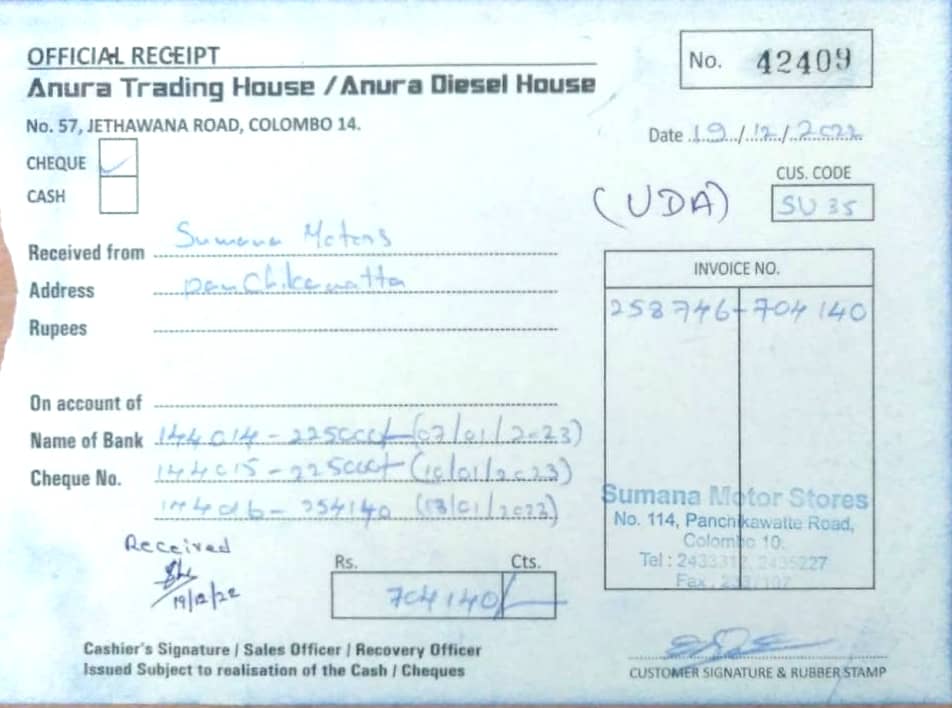 OFFICIAL RECEIPT
No. 42409
Anura Trading House / Anura Diesel House
No. 57, JETHAWANA ROAD, COLOMBO 14.
Date 19/12/2022
CHEQUE ✓
CASH
CUS. CODE
(UDA) SU 35
Received from Sumana Motors
Address Panchikawatta
INVOICE NO.
258746 - 704 140
Rupees
On account of
Name of Bank 144014 - 225000/- (07/01/2023)
Cheque No. 144015 - 225000/- (10/01/2023)
144016 - 254140 (13/01/2023)
Sumana Motor Stores
No. 114, Panchikawatte Road,
Colombo 10.
Tel : 2435227
Fax
Received
19/12/22
Rs. Cts.
704140/-
Cashier's Signature / Sales Officer / Recovery Officer
Issued Subject to realisation of the Cash / Cheques
CUSTOMER SIGNATURE & RUBBER STAMP